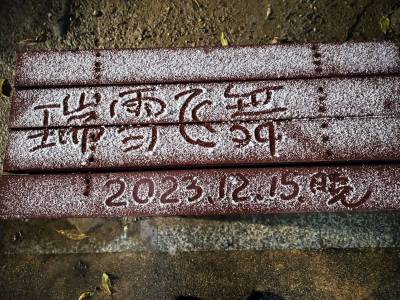 瑞雪飞舞
2023.12.15.晓